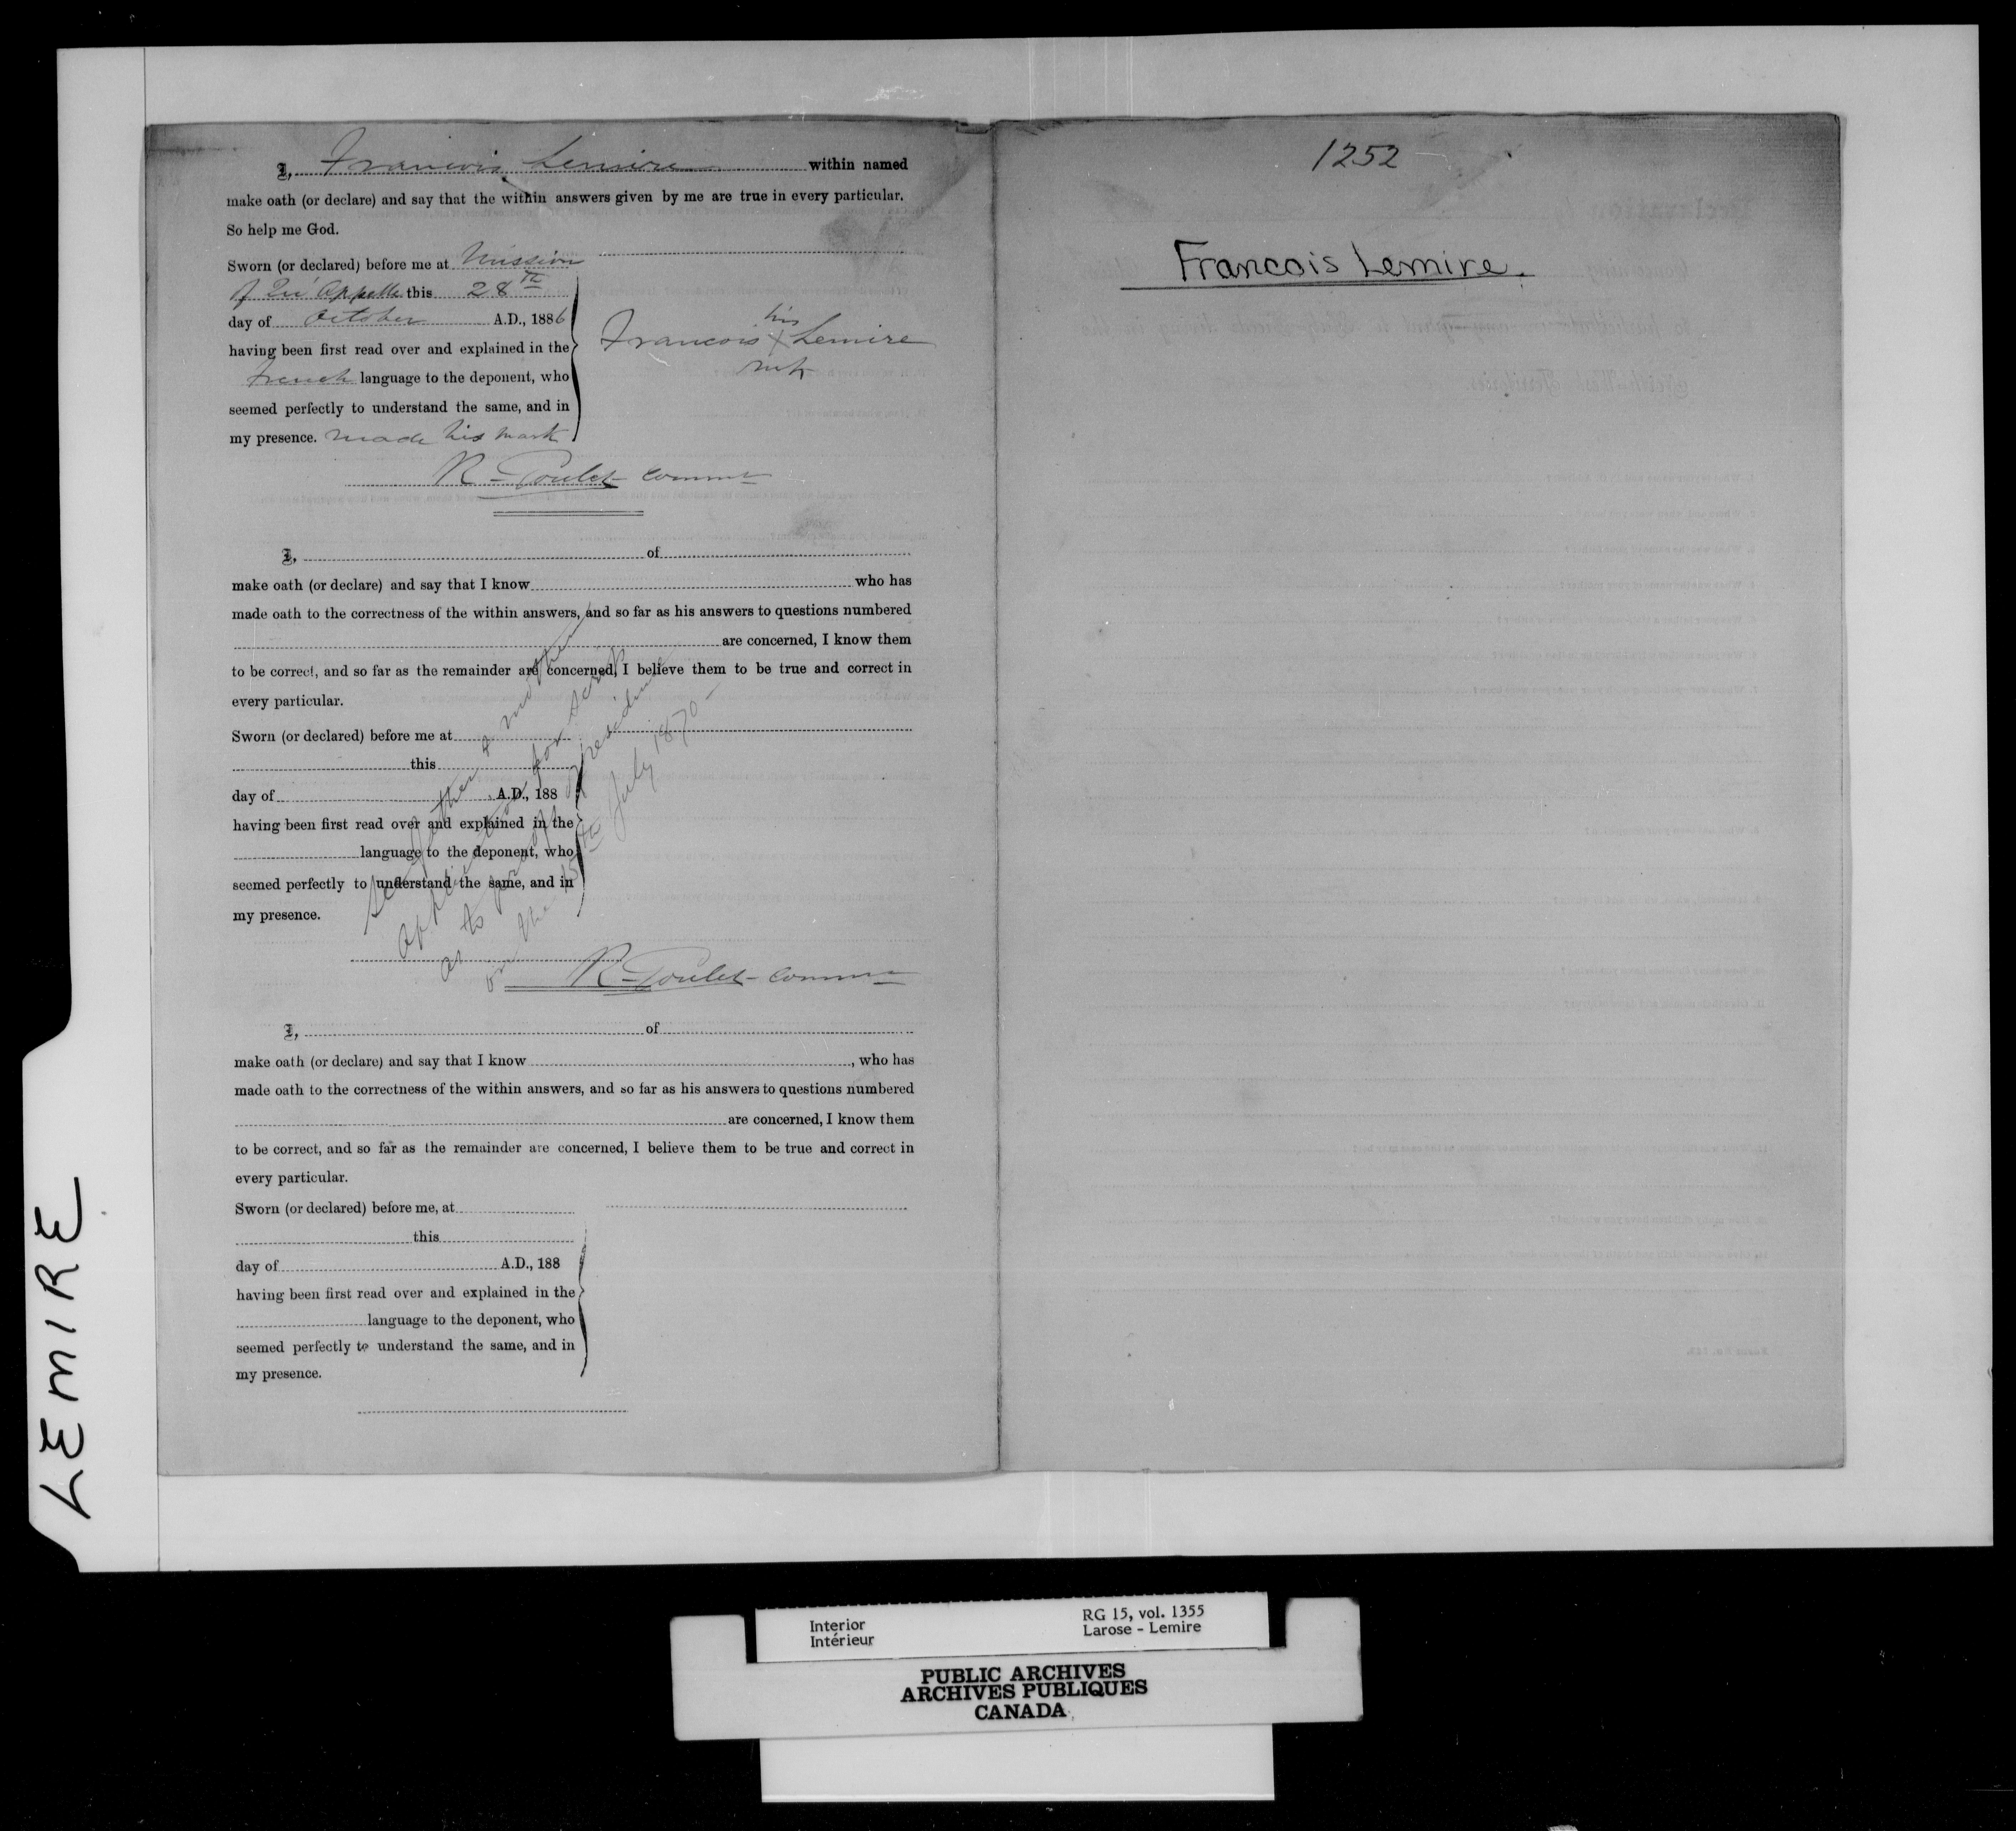 I, Francois Lemire within named
make oath (or declare) and say that the within answers given by me are true in every particular.
So help me God.
Sworn (or declared) before me at Mission
of Qu'Appelle this 28th
day of October A.D., 1886
having been first read over and explained in the
French language to the deponent, who
seemed perfectly to understand the same, and in
my presence. made his mark
his
Francois X Lemire
mk
R. Goulet commr
I, of
make oath (or declare) and say that I know who has
made oath to the correctness of the within answers, and so far as his answers to questions numbered
are concerned, I know them
to be correct, and so far as the remainder are concerned, I believe them to be true and correct in
every particular.
Sworn (or declared) before me at
this
day of A.D., 188
having been first read over and explained in the
language to the deponent, who
seemed perfectly to understand the same, and in
my presence.
See father & mother
application for scrip
as to proof of residence
on the 15th July 1870 -
R. Goulet - commr
I, of
make oath (or declare) and say that I know , who has
made oath to the correctness of the within answers, and so far as his answers to questions numbered
are concerned, I know them
to be correct, and so far as the remainder are concerned, I believe them to be true and correct in
every particular.
Sworn (or declared) before me, at
this
day of A.D., 188
having been first read over and explained in the
language to the deponent, who
seemed perfectly to understand the same, and in
my presence.
1252
Francois Lemire.
LEMIRE
Interior
Intérieur
RG 15, vol. 1355
Larose - Lemire
PUBLIC ARCHIVES
ARCHIVES PUBLIQUES
CANADA